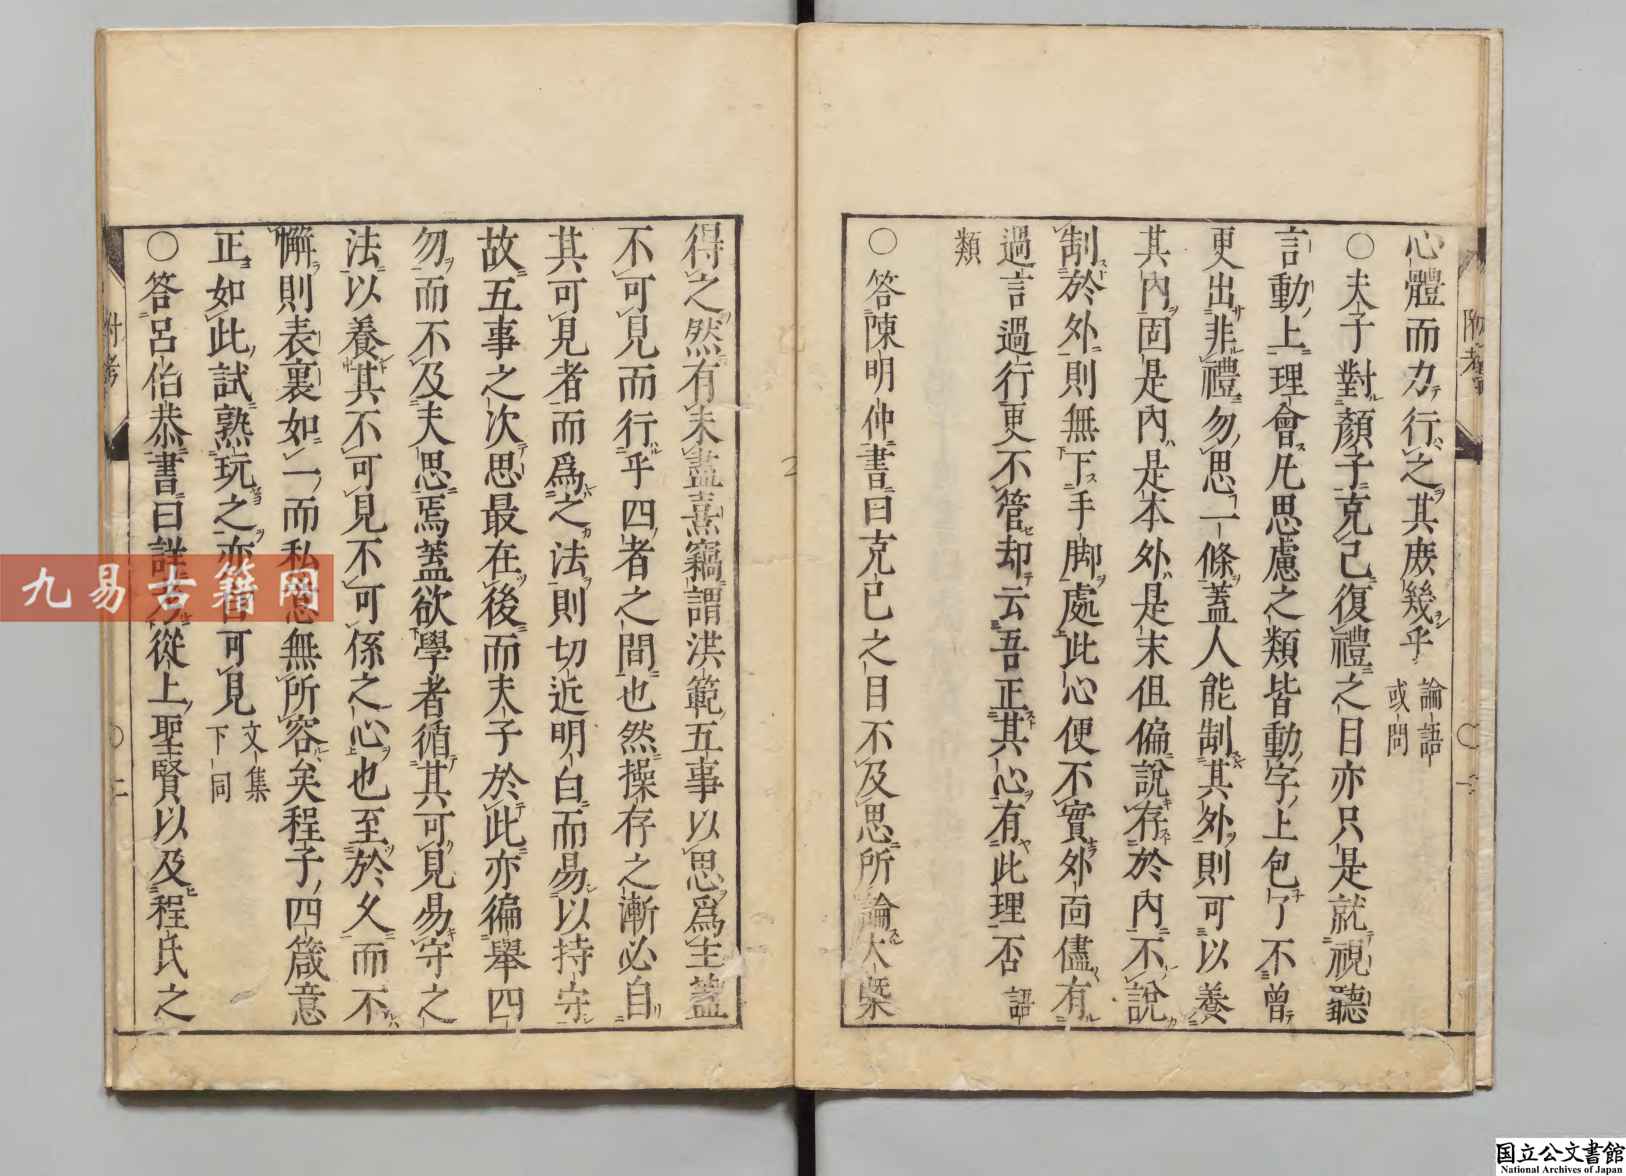 心體而力行之其庶幾乎 論語或問
○夫子對顏子克己復禮之目亦只是就視聽
言動上理會凡思慮之類皆動字上包了不曾
更出非禮勿思一條蓋人能制其外則可以養
其內固是內是本外是末但偏說存於內不說
制於外則無下手脚處此心便不實外面儘有
過言過行更不管却云吾正其心有此理否 語
類
○答陳明仲書曰克己之目不及思所論大槩
得之然有未盡熹竊謂洪範五事以思為主蓋
不可見而行乎四者之間也然操存之漸必自
其可見者而為之法則切近明白而易以持守
故五事之次思最在後而夫子於此亦徧舉四
勿而不及夫思焉蓋欲學者循其可見易守之
法以養其不可見不可係之心也至於久而不
懈則表裏如一而私意無所容矣程子四箴意
正如此試熟玩之亦自可見 文集下同
○答呂伯恭書曰詳從上聖賢以及程氏之
附考
附考
九易古籍网
国立公文書館
National Archives of Japan